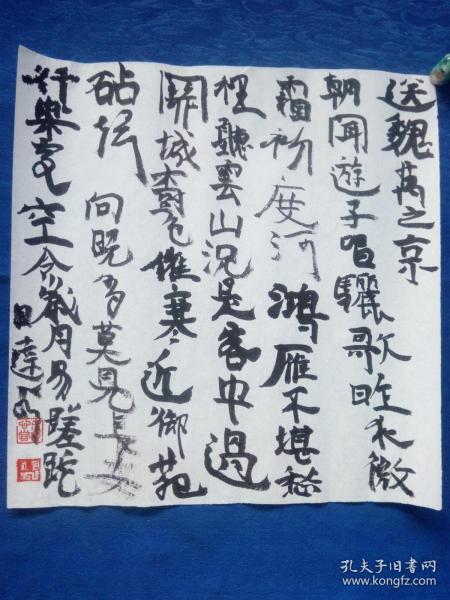 送魏萬之京
朝聞遊子唱驪歌昨夜微
霜初度河鴻雁不堪愁
裡聽雲山況是客中過
關城樹色催寒近御苑
砧聲向晚多莫見長安
行樂處空令歲月易蹉跎
孔夫子旧书网
www.kongfz.com